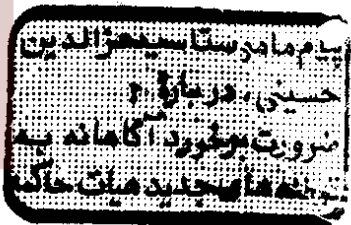 پیام ماموستا سید عزالدین
حسینی، درباره
ضرورت برخورد آگاهانه به
توطئه های جدید هیات حاکمه